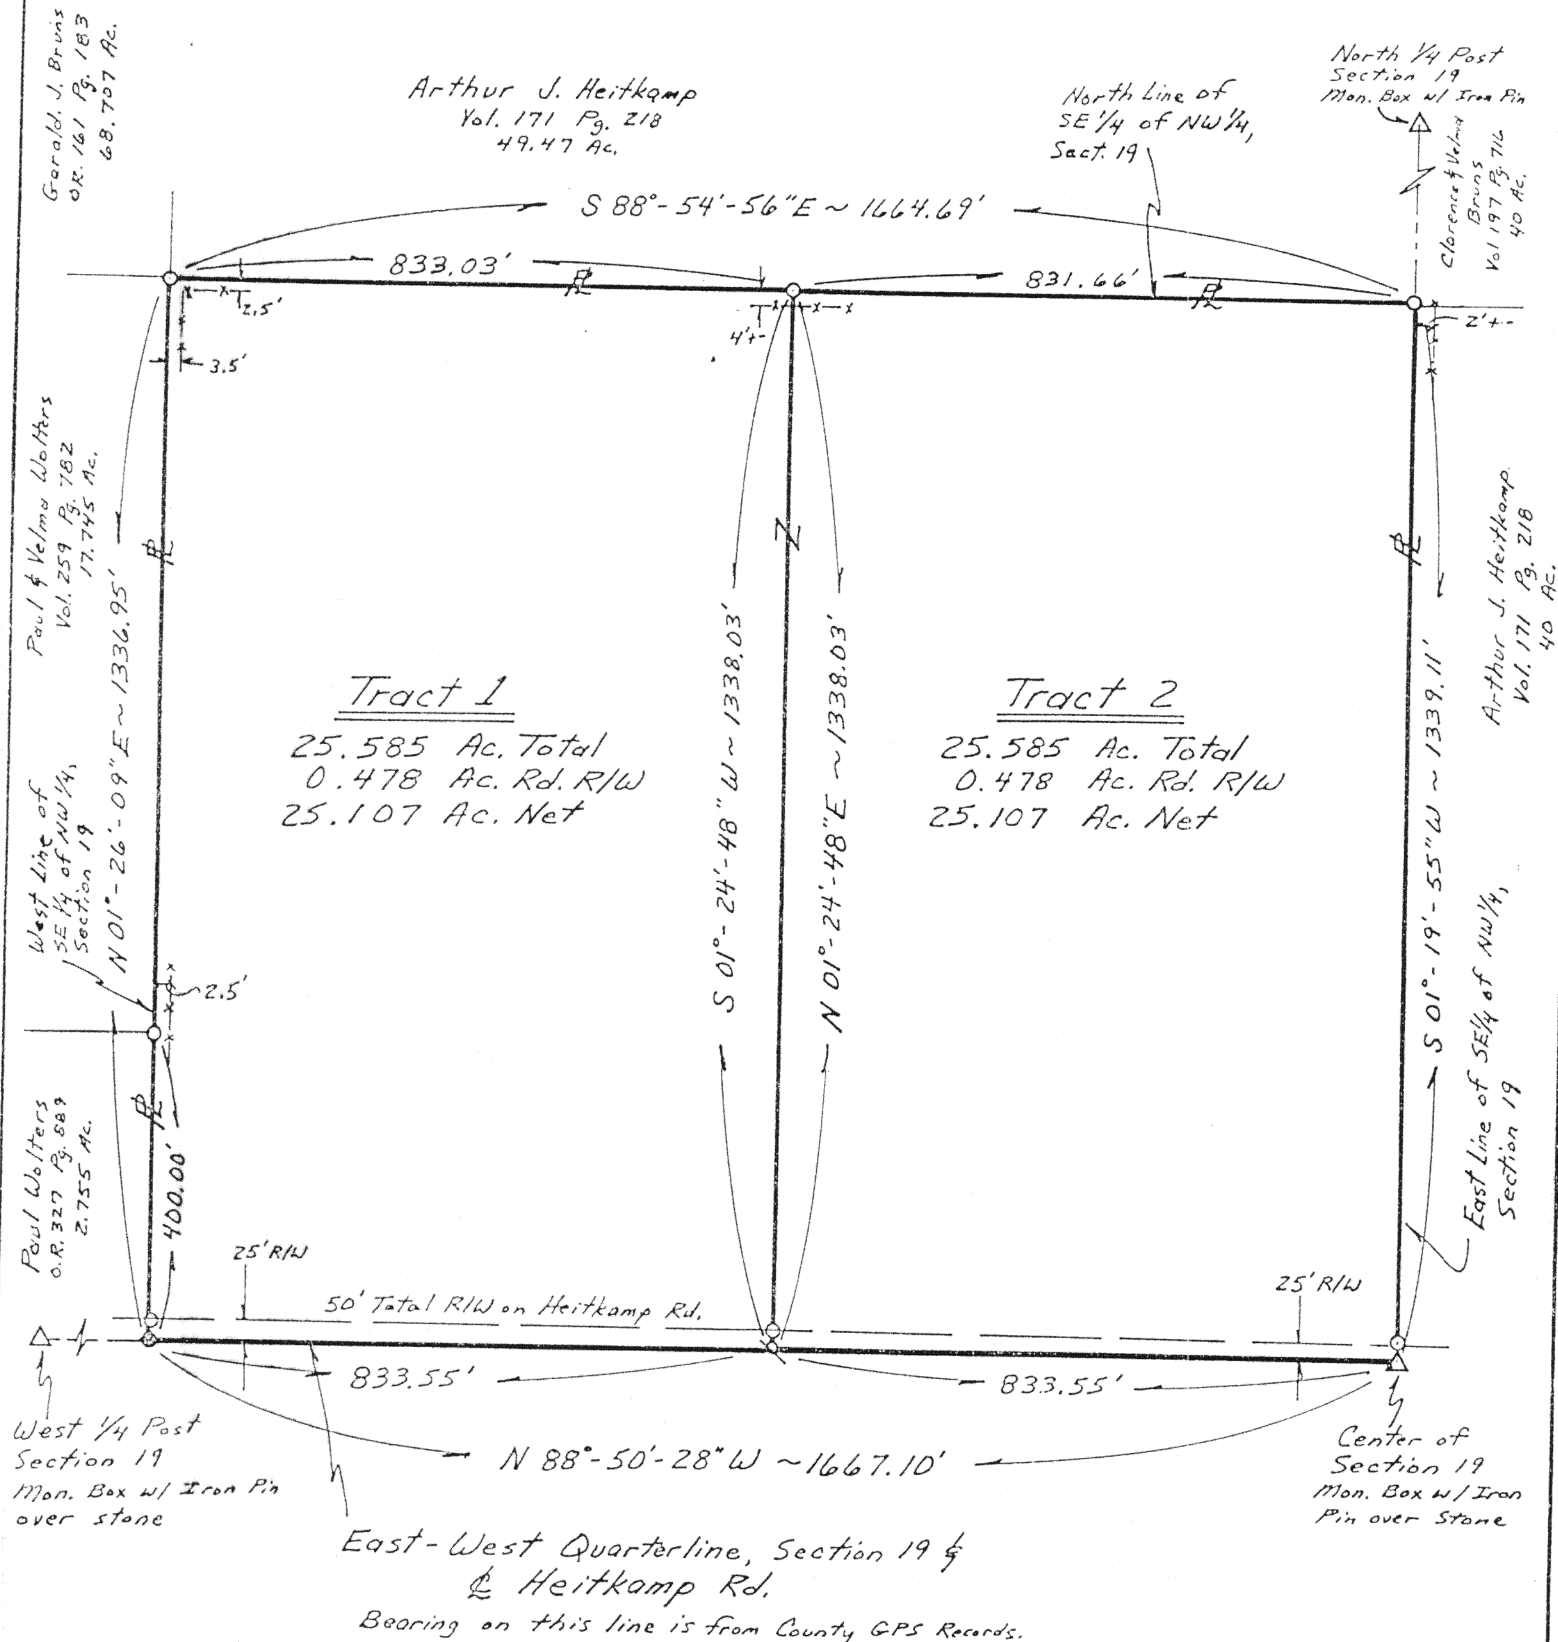 Gerald J. Bruns
OR. 161 Pg. 183
68.707 Ac.
Arthur J. Heitkamp
Vol. 171 Pg. 218
49.47 Ac.
North Line of
SE 1/4 of NW 1/4,
Sect. 19
North 1/4 Post
Section 19
Mon. Box w/ Iron Pin
Clarence & Velma
Bruns
Vol 197 Pg. 716
40 Ac.
S 88°-54'-56"E ~ 1664.69'
833.03'
831.66'
PL
PL
2.5'
4'+-
2'+-
3.5'
Paul & Velma Wolters
Vol. 259 Pg. 782
17.745 Ac.
N 01°-26'-09"E ~ 1336.95'
PL
Z
PL
Arthur J. Heitkamp
Vol. 171 Pg. 218
40 Ac.
Tract 1
25.585 Ac. Total
0.478 Ac. Rd. R/W
25.107 Ac. Net
S 01°-24'-48"W ~ 1338.03'
N 01°-24'-48"E ~ 1338.03'
Tract 2
25.585 Ac. Total
0.478 Ac. Rd. R/W
25.107 Ac. Net
S 01°-19'-55"W ~ 1339.11'
West Line of
SE 1/4 of NW 1/4,
Section 19
2.5'
East Line of SE 1/4 of NW 1/4,
Section 19
Paul Wolters
O.R. 327 Pg. 889
2.755 Ac.
PL
400.00'
25' R/W
50' Total R/W on Heitkamp Rd.
25' R/W
833.55'
833.55'
N 88°-50'-28"W ~ 1667.10'
West 1/4 Post
Section 19
Mon. Box w/ Iron Pin
over stone
Center of
Section 19
Mon. Box w/ Iron
Pin over Stone
East-West Quarterline, Section 19 &
CL Heitkamp Rd.
Bearing on this line is from County GPS Records.